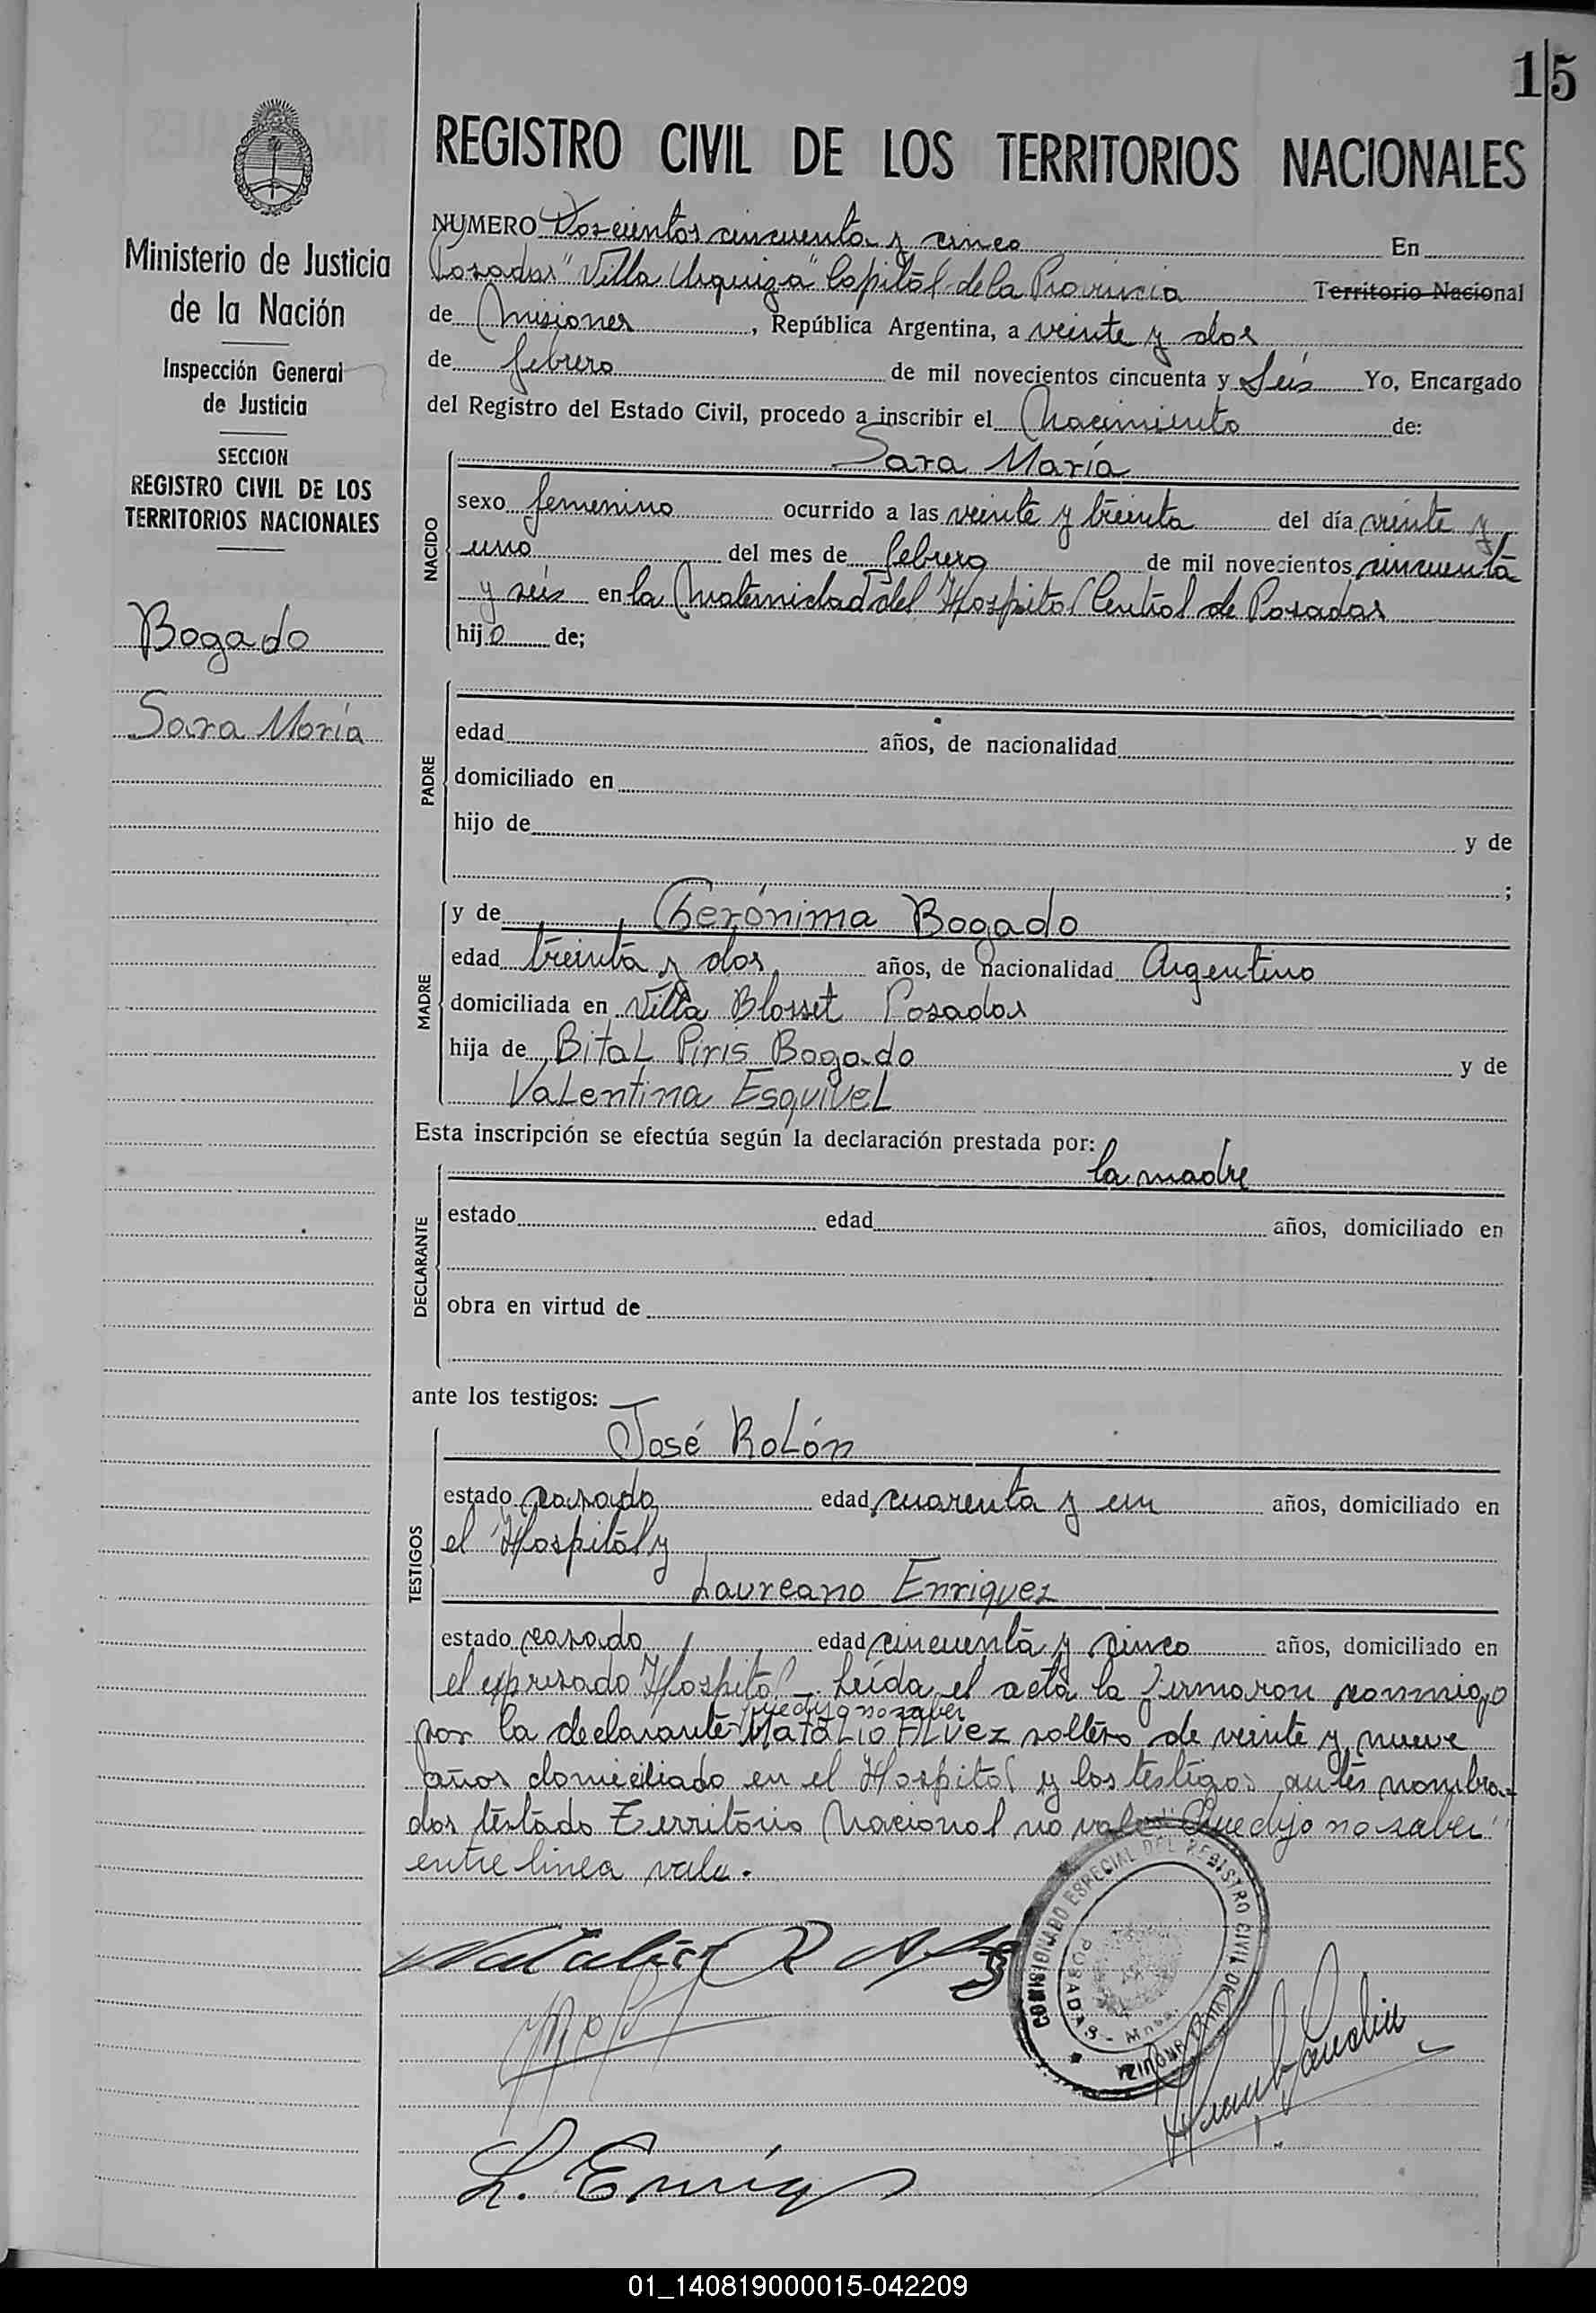 15
REGISTRO CIVIL DE LOS TERRITORIOS NACIONALES
Ministerio de Justicia
de la Nación
Inspección General
de Justicia
SECCION
REGISTRO CIVIL DE LOS
TERRITORIOS NACIONALES
Bogado
Sara María
NUMERO Doscientos cincuenta y cinco En
Posadas "Villa Urquiza" Capital de la Provincia Territorio Nacional
de Misiones, República Argentina, a veinte y dos
de febrero de mil novecientos cincuenta y Seis Yo, Encargado
del Registro del Estado Civil, procedo a inscribir el Nacimiento de:
Sara María
NACIDO
sexo femenino ocurrido a las veinte y treinta del día veinte y
uno del mes de febrero de mil novecientos cincuenta
y seis en la Maternidad del Hospital Central de Posadas
hijo de;
PADRE
edad años, de nacionalidad
domiciliado en
hijo de y de
;
MADRE
y de Gerónima Bogado
edad treinta y dos años, de nacionalidad Argentina
domiciliada en Villa Blosset Posadas
hija de Bital Piris Bogado y de
Valentina Esquivel
Esta inscripción se efectúa según la declaración prestada por:
la madre
DECLARANTE
estado edad años, domiciliado en
obra en virtud de
ante los testigos:
José Rolón
TESTIGOS
estado casado edad cuarenta y un años, domiciliado en
el Hospital y
Laureano Enriquez
estado casado edad cincuenta y cinco años, domiciliado en
el expresado Hospital. Leída el acta la firmaron conmigo
que dijo no saber
por la declarante Natalio Alvez soltero de veinte y nueve
años domiciliado en el Hospital y los testigos antes nombra-
dos testado Territorio Nacional no vale "Que dijo no saber"
entre linea vale.
COMISIONADO ESPECIAL DEL REGISTRO CIVIL DE VILLA URQUIZA
POSADAS - Mnes.
Natalio R
L. Enriq
01_140819000015-042209